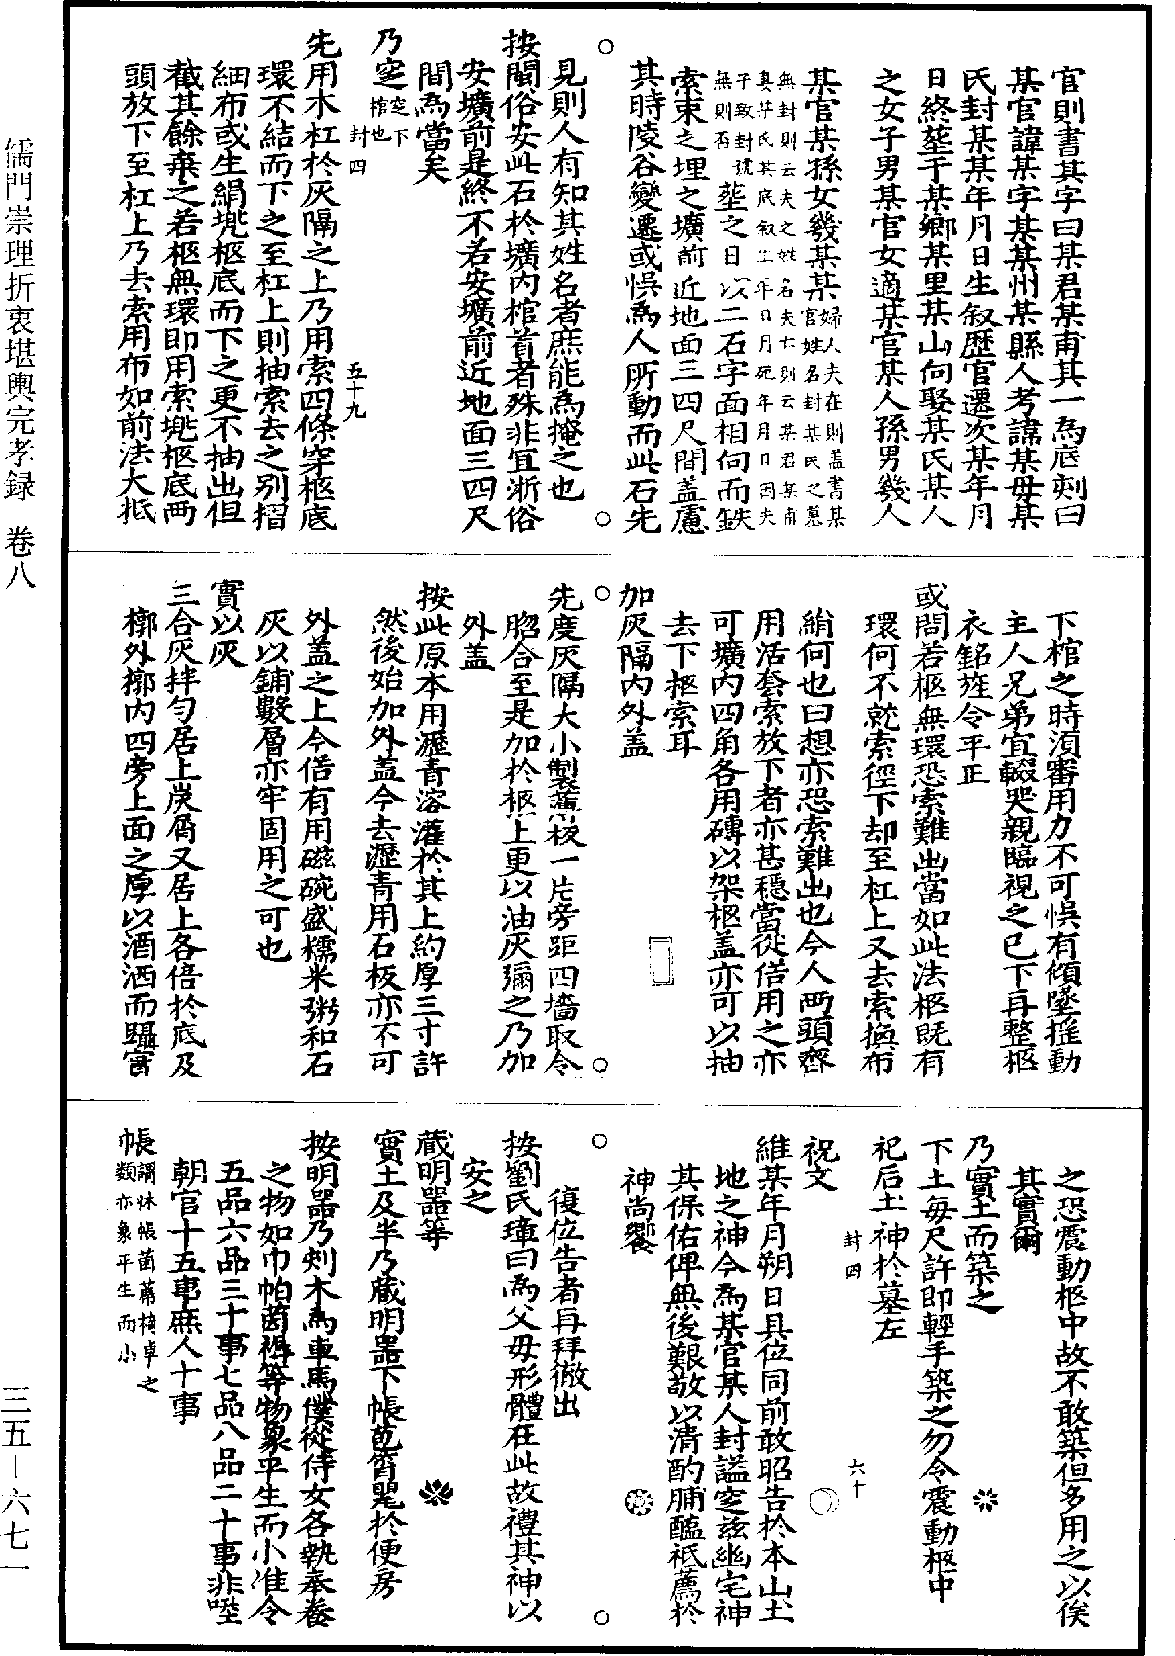 官則書其字曰某君某甫其一為底刻曰
某官諱某字某某州某縣人考諱某母某
氏封某某年月日生叙歷官遷次某年月
日終塟于某鄉某里某山向娶某氏某人
之女子男某官女適某官某人孫男幾人
某官某孫女幾某某婦人夫在則盖書某官姓名封某氏之墓
無封則云夫之姓名夫亡則云某君某甫
妻某氏其底叙生年日月死年月日因夫
子致封號無則否塟之日以二石字面相向而鉄
索束之埋之壙前近地面三四尺間盖慮
其時陵谷變遷或悞為人所動而此石先
見則人有知其姓名者庶能為掩之也
按閩俗安此石於壙內棺首者殊非宜淅俗
安壙前是終不若安壙前近地面三四尺
間為當矣
乃窆窆下棺也
封四
五十九
先用木杠於灰隔之上乃用索四條穿柩底
環不結而下之至杠上則抽索去之别摺
細布或生絹兠柩底而下之更不抽出但
截其餘棄之若柩無環即用索兠柩底兩
頭放下至杠上乃去索用布如前法大抵
下棺之時湏審用力不可悞有傾墜搖動
主人兄弟宜輟哭親臨視之已下再整柩
衣銘旌令平正
或問若柩無環恐索難出當如此法柩既有
環何不就索徑下却至杠上又去索換布
絹何也曰想亦恐索難出也今人兩頭齊
用活套索放下者亦甚穩當從偣用之亦
可壙內四角各用磚以架柩盖亦可以抽
去下柩索耳
加灰隔內外盖
先度灰隔大小製薄板一片旁距四墻取令
脗合至是加於柩上更以油灰彌之乃加
外盖
按此原本用瀝青溶灌於其上約厚三寸許
然後始加外盖今去瀝青用石板亦不可
外盖之上今偣有用磁碗盛糯米粥和石
灰以鋪數層亦牢固用之可也
實以灰
三合灰拌勻居上炭屑又居上各倍於底及
槨外槨內四旁上面之厚以酒洒而躡實
之恐震動柩中故不敢築但多用之以俟
其實爾
乃實土而築之
下土每尺許即輕手築之勿令震動柩中
祀后土神於墓左
封四
六十
祝文
維某年月朔日具位同前敢昭告於本山土
地之神今為某官某人封諡窆兹幽宅神
其保佑俾無後艱敬以清酌脯醢祗薦於
神尚饗
復位告者再拜徹出
按劉氏璋曰為父母形體在此故禮其神以
安之
蔵明器等
實土及半乃蔵明器下帳苞筲甖於便房
按明器乃刻木為車馬僕從侍女各執奉養
之物如巾帕茵褥等物象平生而小准令
五品六品三十事七品八品二十事非陞
朝官十五事庶人十事
帳謂牀帳茵蓆椅卓之類亦象平生而小
儒門崇理折衷堪輿完孝録 卷八
三五－六七一